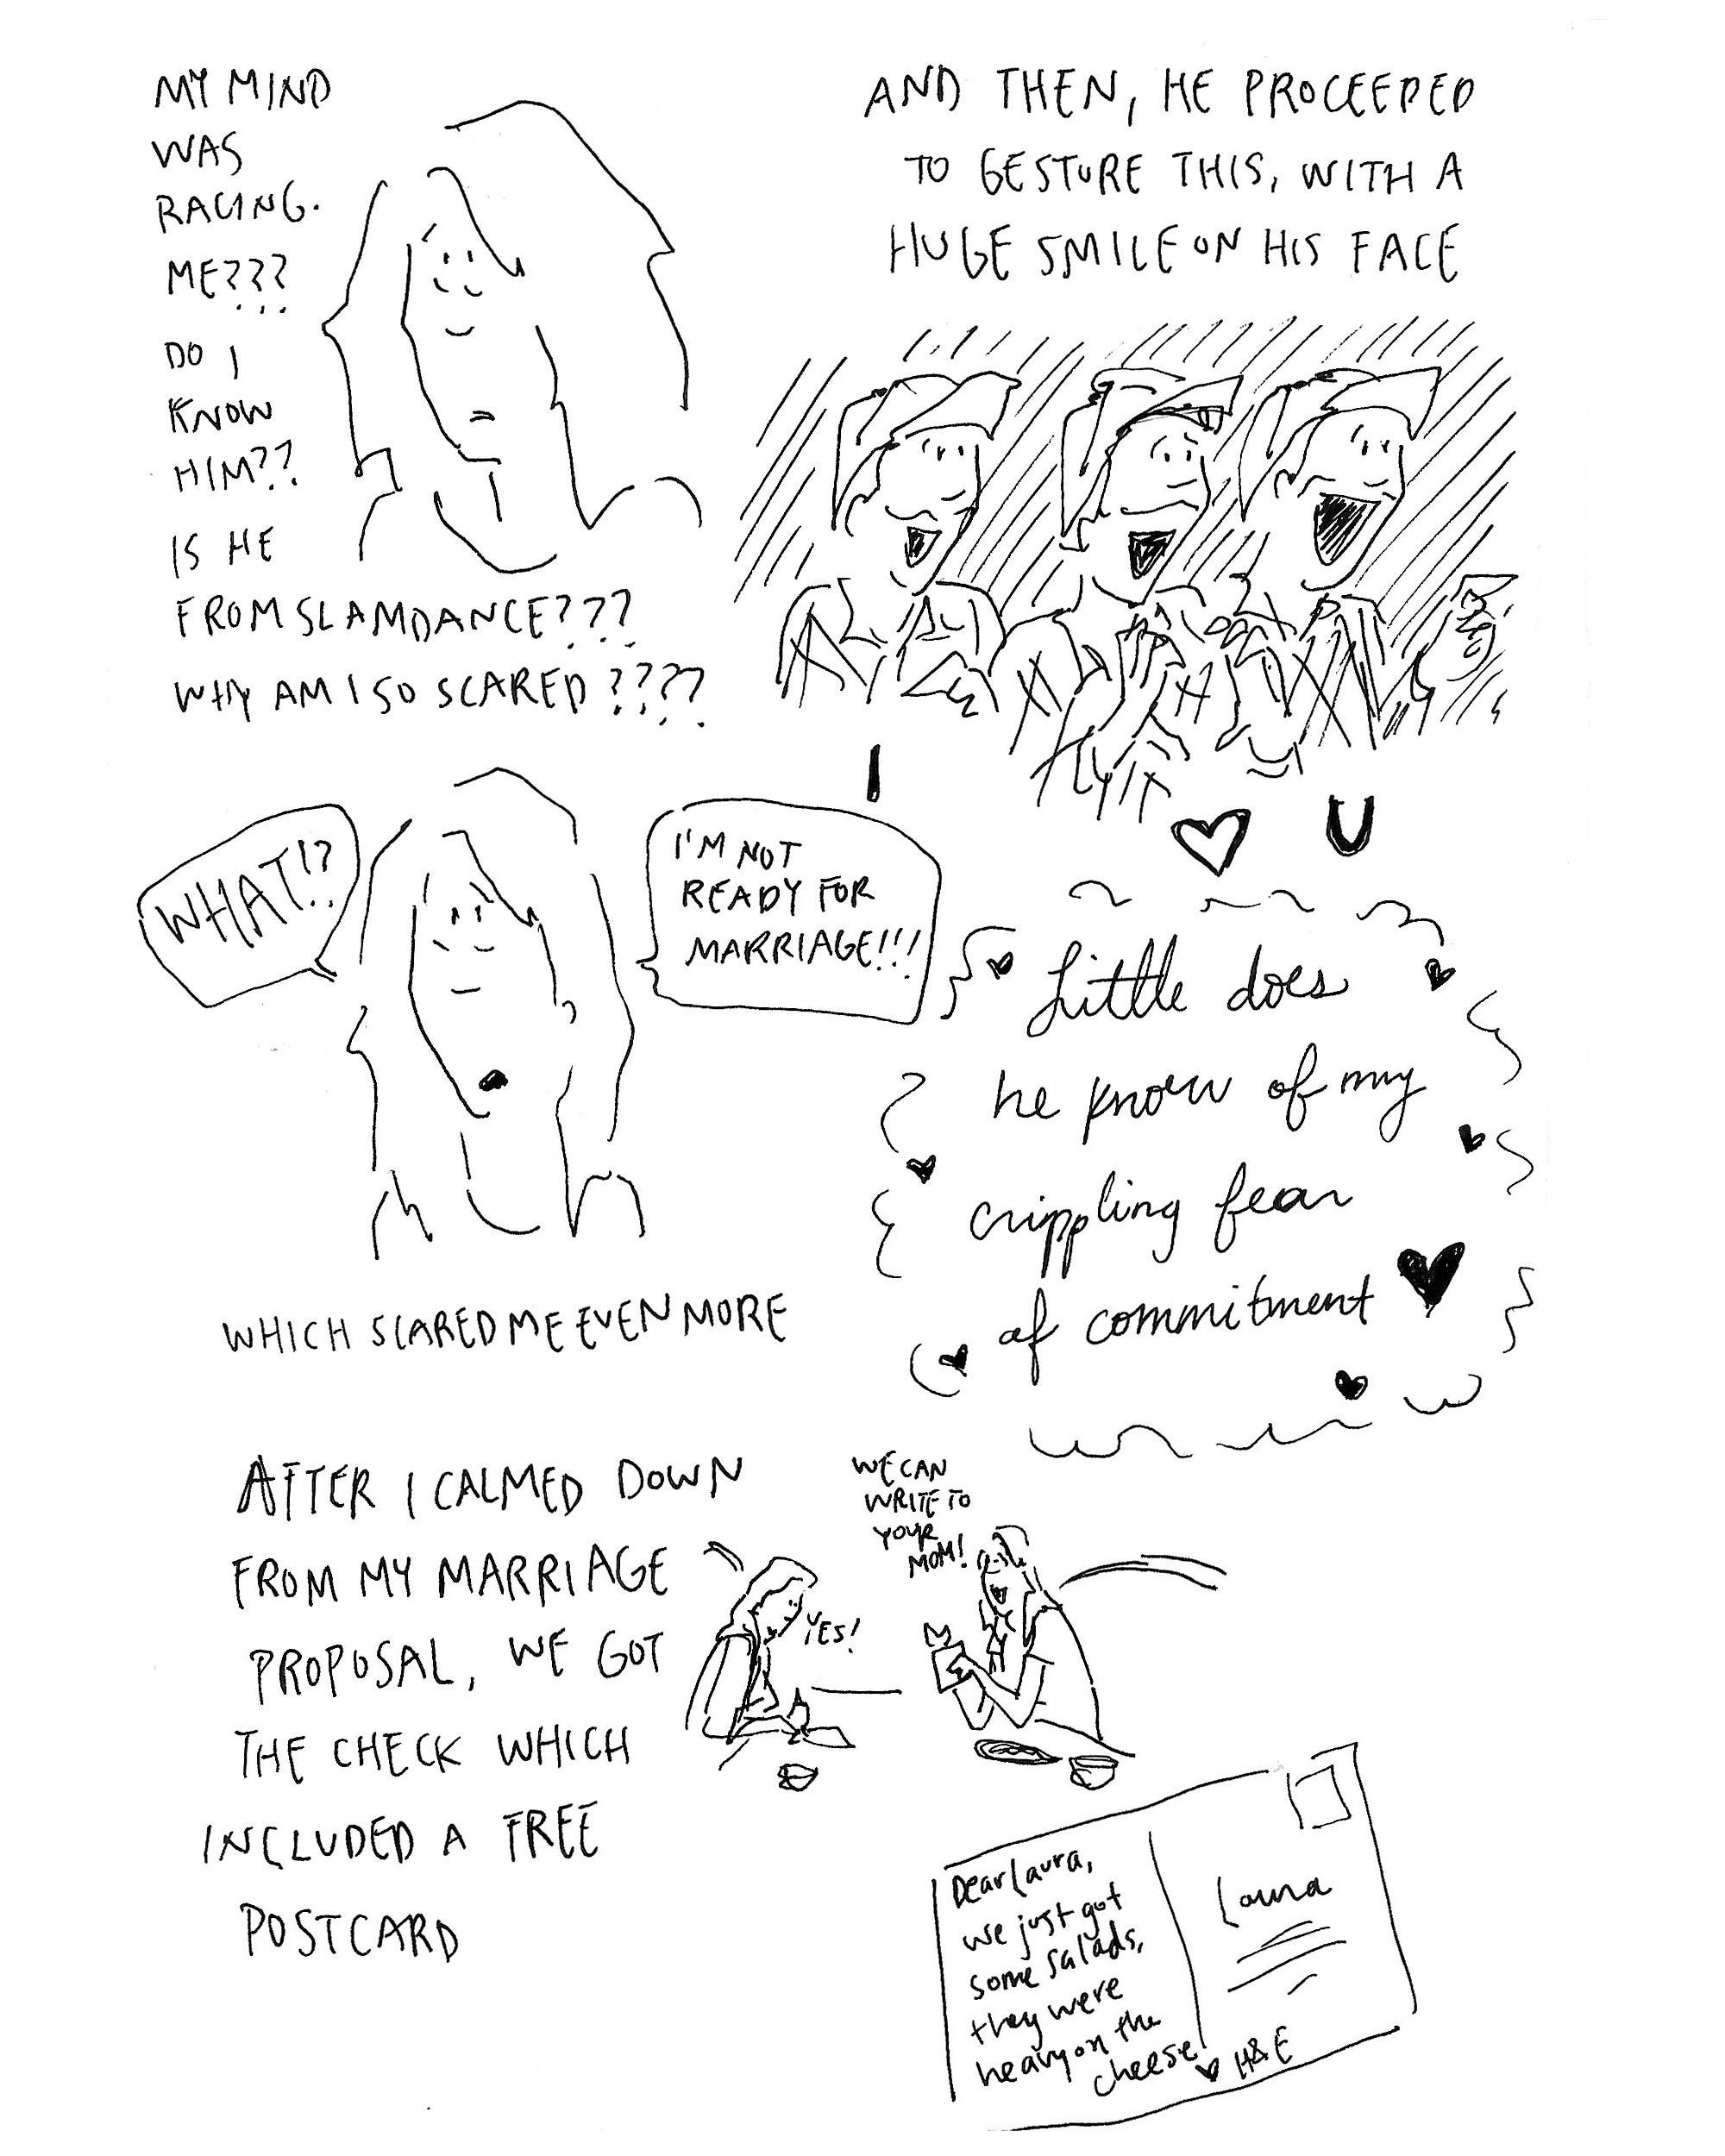 MY MIND
WAS
RACING.
ME???
DO I
KNOW
HIM??
IS HE
FROM SLAMDANCE???
WHY AM I SO SCARED????
AND THEN, HE PROCEEDED
TO GESTURE THIS, WITH A
HUGE SMILE ON HIS FACE
I ♥ U
WHAT!?
I'M NOT
READY FOR
MARRIAGE!!!
WHICH SCARED ME EVEN MORE
Little does
he know of my
crippling fear
of commitment ♥
AFTER I CALMED DOWN
FROM MY MARRIAGE
PROPOSAL, WE GOT
THE CHECK WHICH
INCLUDED A FREE
POSTCARD
WE CAN
WRITE TO
YOUR
MOM!
YES!
Dear Laura,
we just got
some salads,
they were
heavy on the
cheese!
♥ H&E
Laura